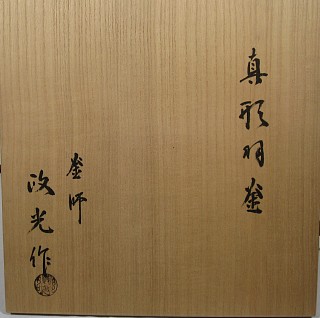 真形羽釜
釜師
政光作